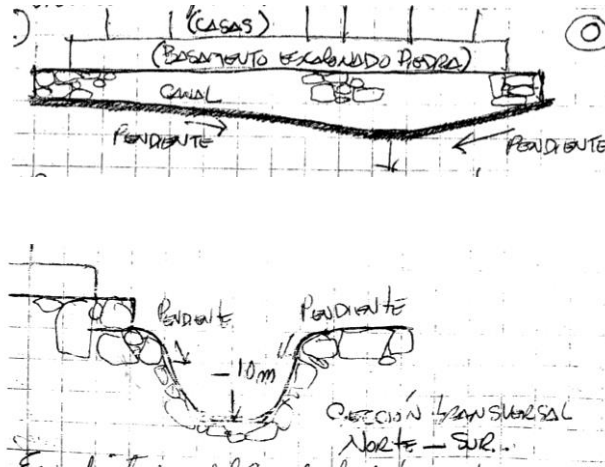 (CASAS)
O
(BASAMENTO ESCALONADO PIEDRA)
CANAL
PENDIENTE
PENDIENTE
PENDIENTE
PENDIENTE
-10m
SECCIÓN TRANSVERSAL
NORTE - SUR.